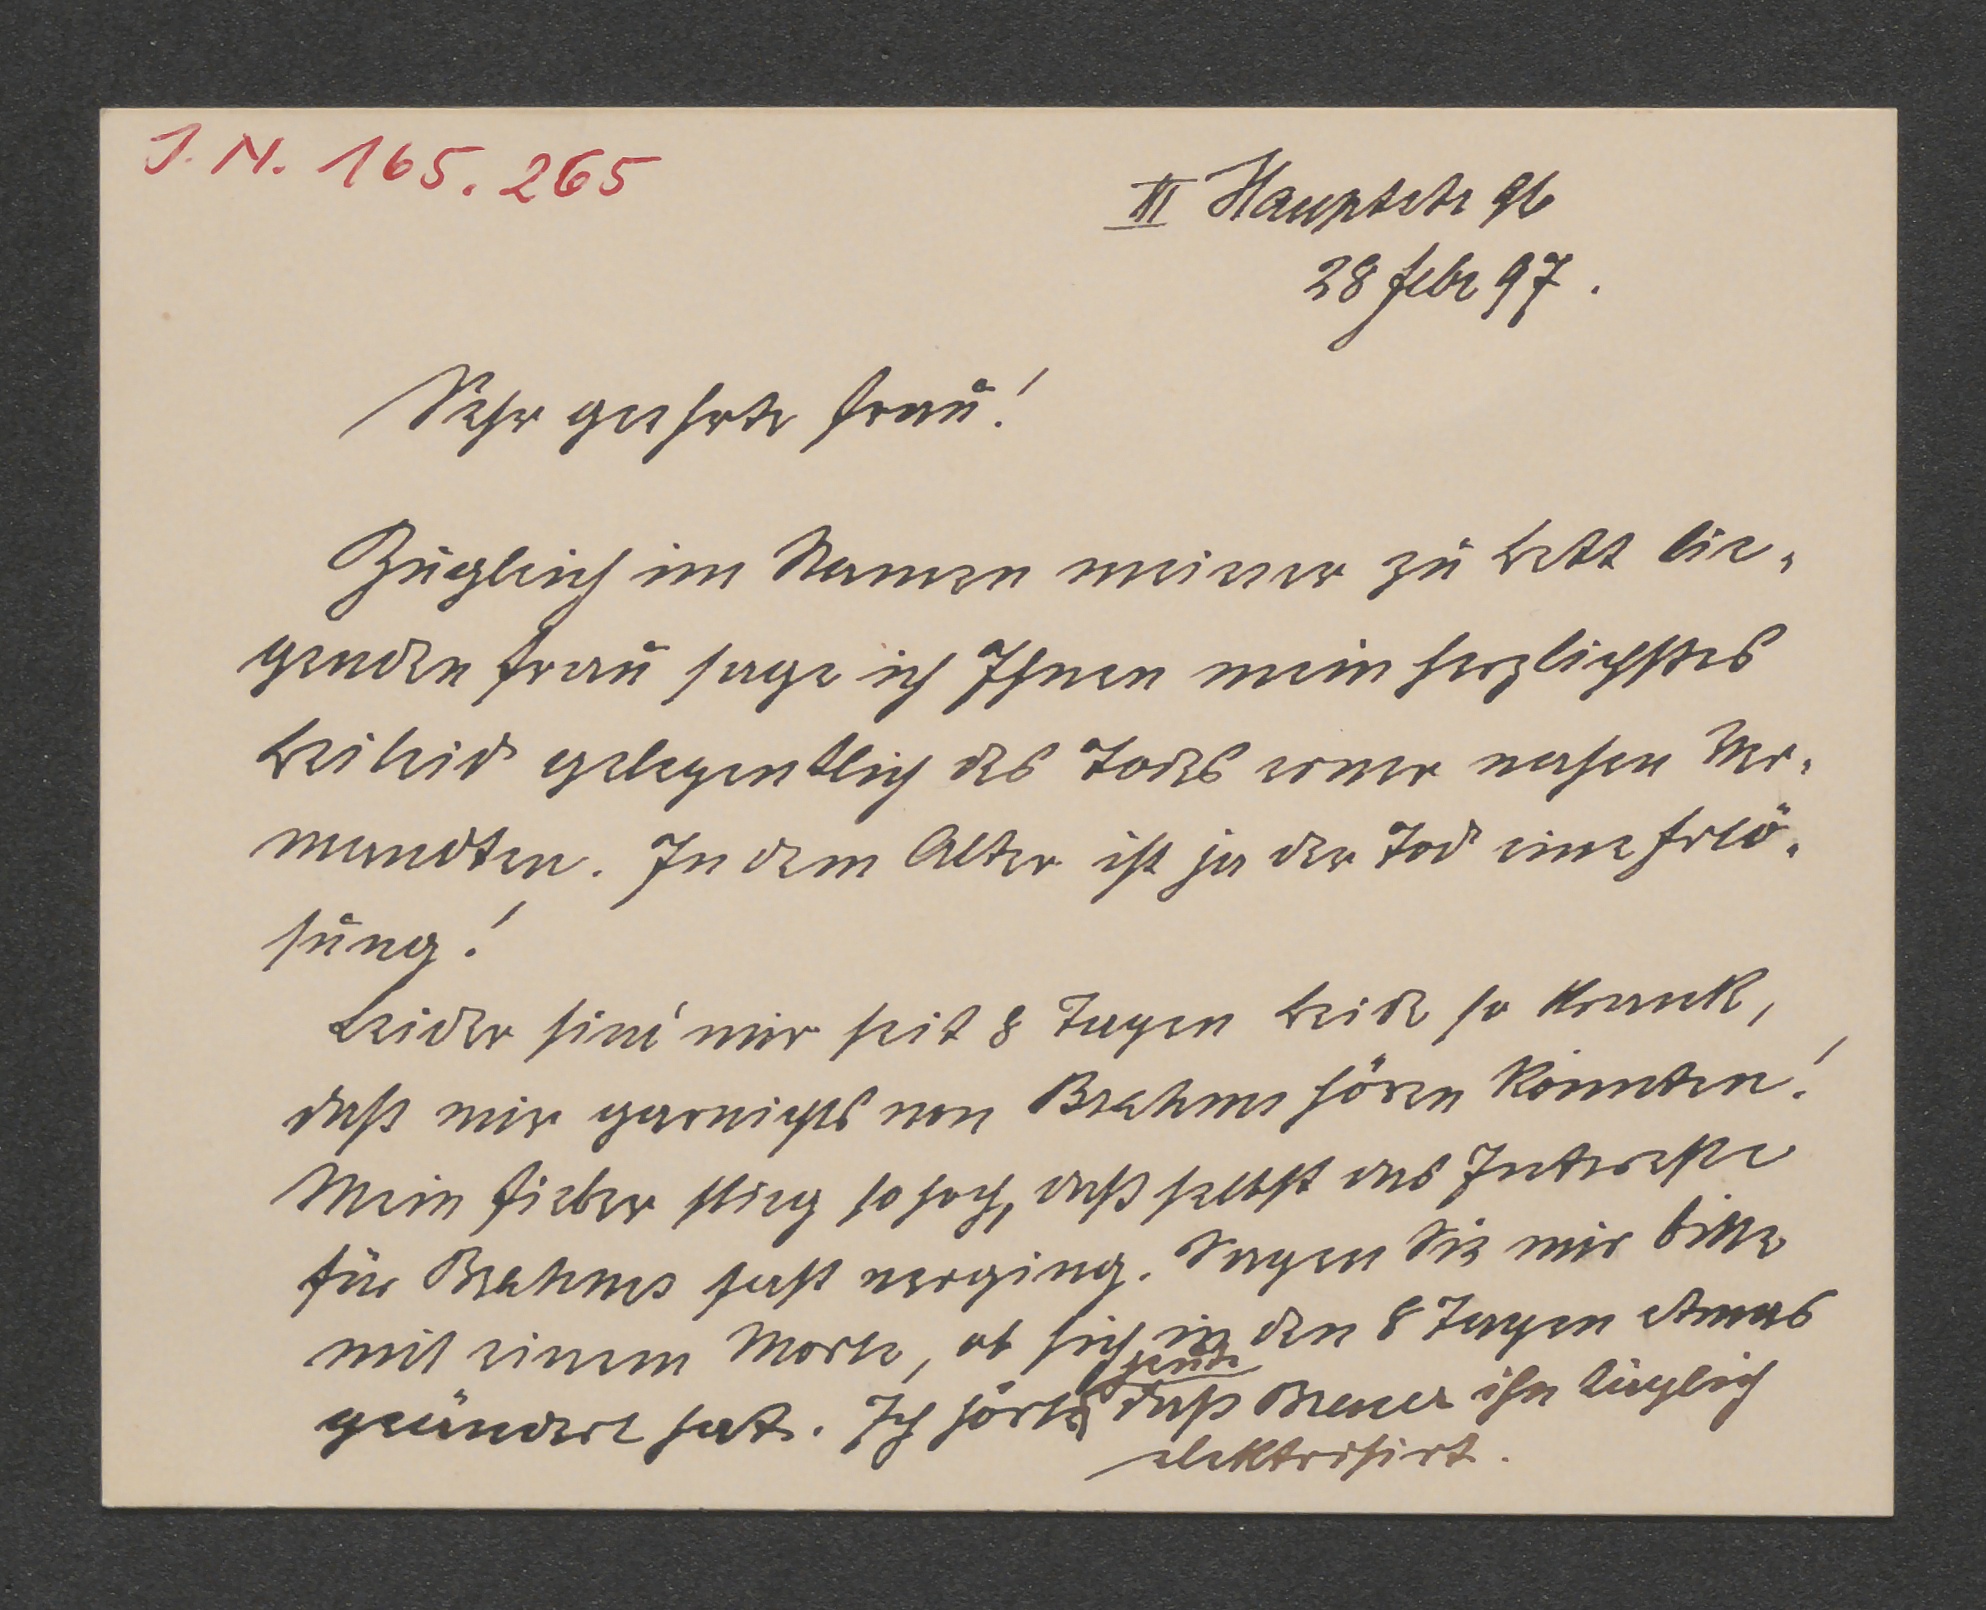 J. N. 165.265
III Hauptstr 96
28 Febr 97.
Sehr geehrte Frau!
Zugleich im Namen meiner zu Bett lie-
genden Frau sage ich Ihnen mein herzlichstes
Beileid gelegentlich des Todes einer nahen Ver-
wandten. In dem Alter ist ja der Tod eine Erlö-
sung!
Leider sind wir seit 8 Tagen beide so krank,
daß wir garnichts von Brahms hören konnten!
Mein Fieber stieg so hoch, daß selbst das Interesse
für Brahms fast verging. Sagen Sie mir bitte
mit einem Worte, ob sich in den 8 Tagen etwas
geändert hat. Ich hörte heute daß Breuer ihn täglich
elektrisirt.